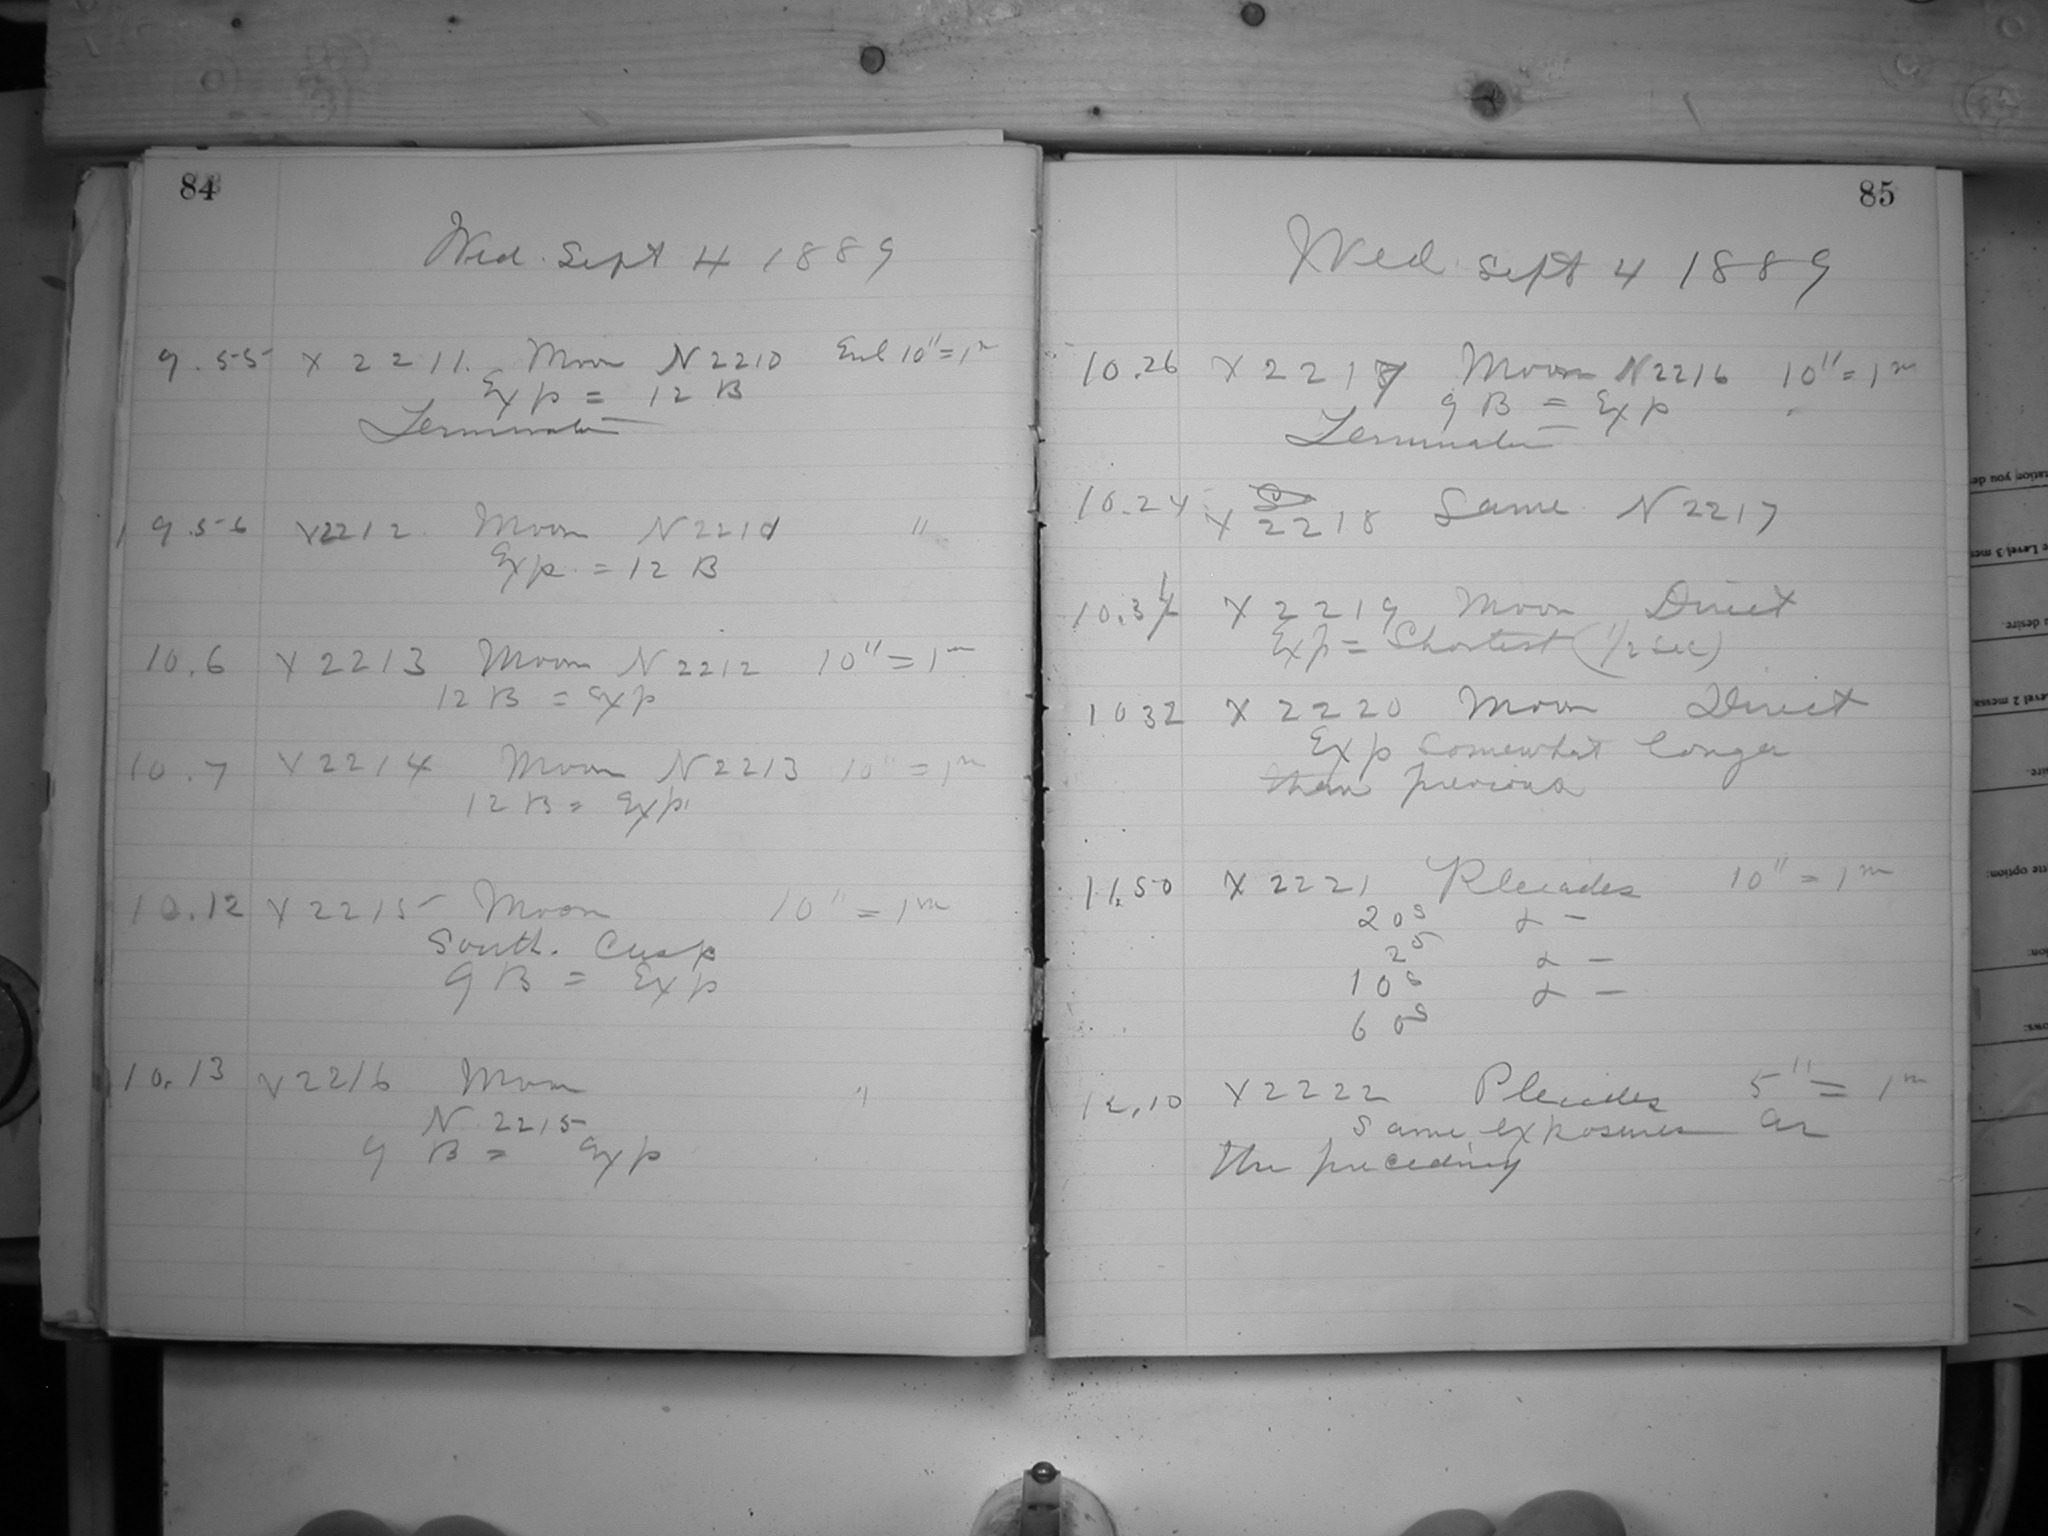 84
Wed. Sept 4 1889
9.55 X 2211. Moon N2210 Enl 10"=1m
Exp = 12 B
Terminator
9.56 X2212. Moon N2211 "
Exp. = 12 B
10.6 X 2213 Moon N2212 10"=1m
12 B = Exp
10.7 X2214 Moon N2213 10"=1m
12 B = Exp.
10.12 X2215 Moon 10"=1m
South. Cusp
9 B = Exp
10.13 X2216 Moon "
N 2215
9 B = Exp
85
Wed. Sept 4 1889
10.26 X 2217 Moon N2216 10"=1m
9 B = Exp
Terminator
10.24 X 2218 Same N2217
10.31 X 2219 Moon Direct
Exp = Shortest (1/2 sec)
10 32 X 2220 Moon Direct
Exp somewhat longer
than previous
11.50 X 2221 Pleiades 10"=1m
20s α –
2s α –
10s α –
60s
12.10 X2222 Pleiades 5"=1m
Same exposures as
the preceding
ation you de
e Level 3 mes
desire.
evel 2 messa
tte option:
ows: